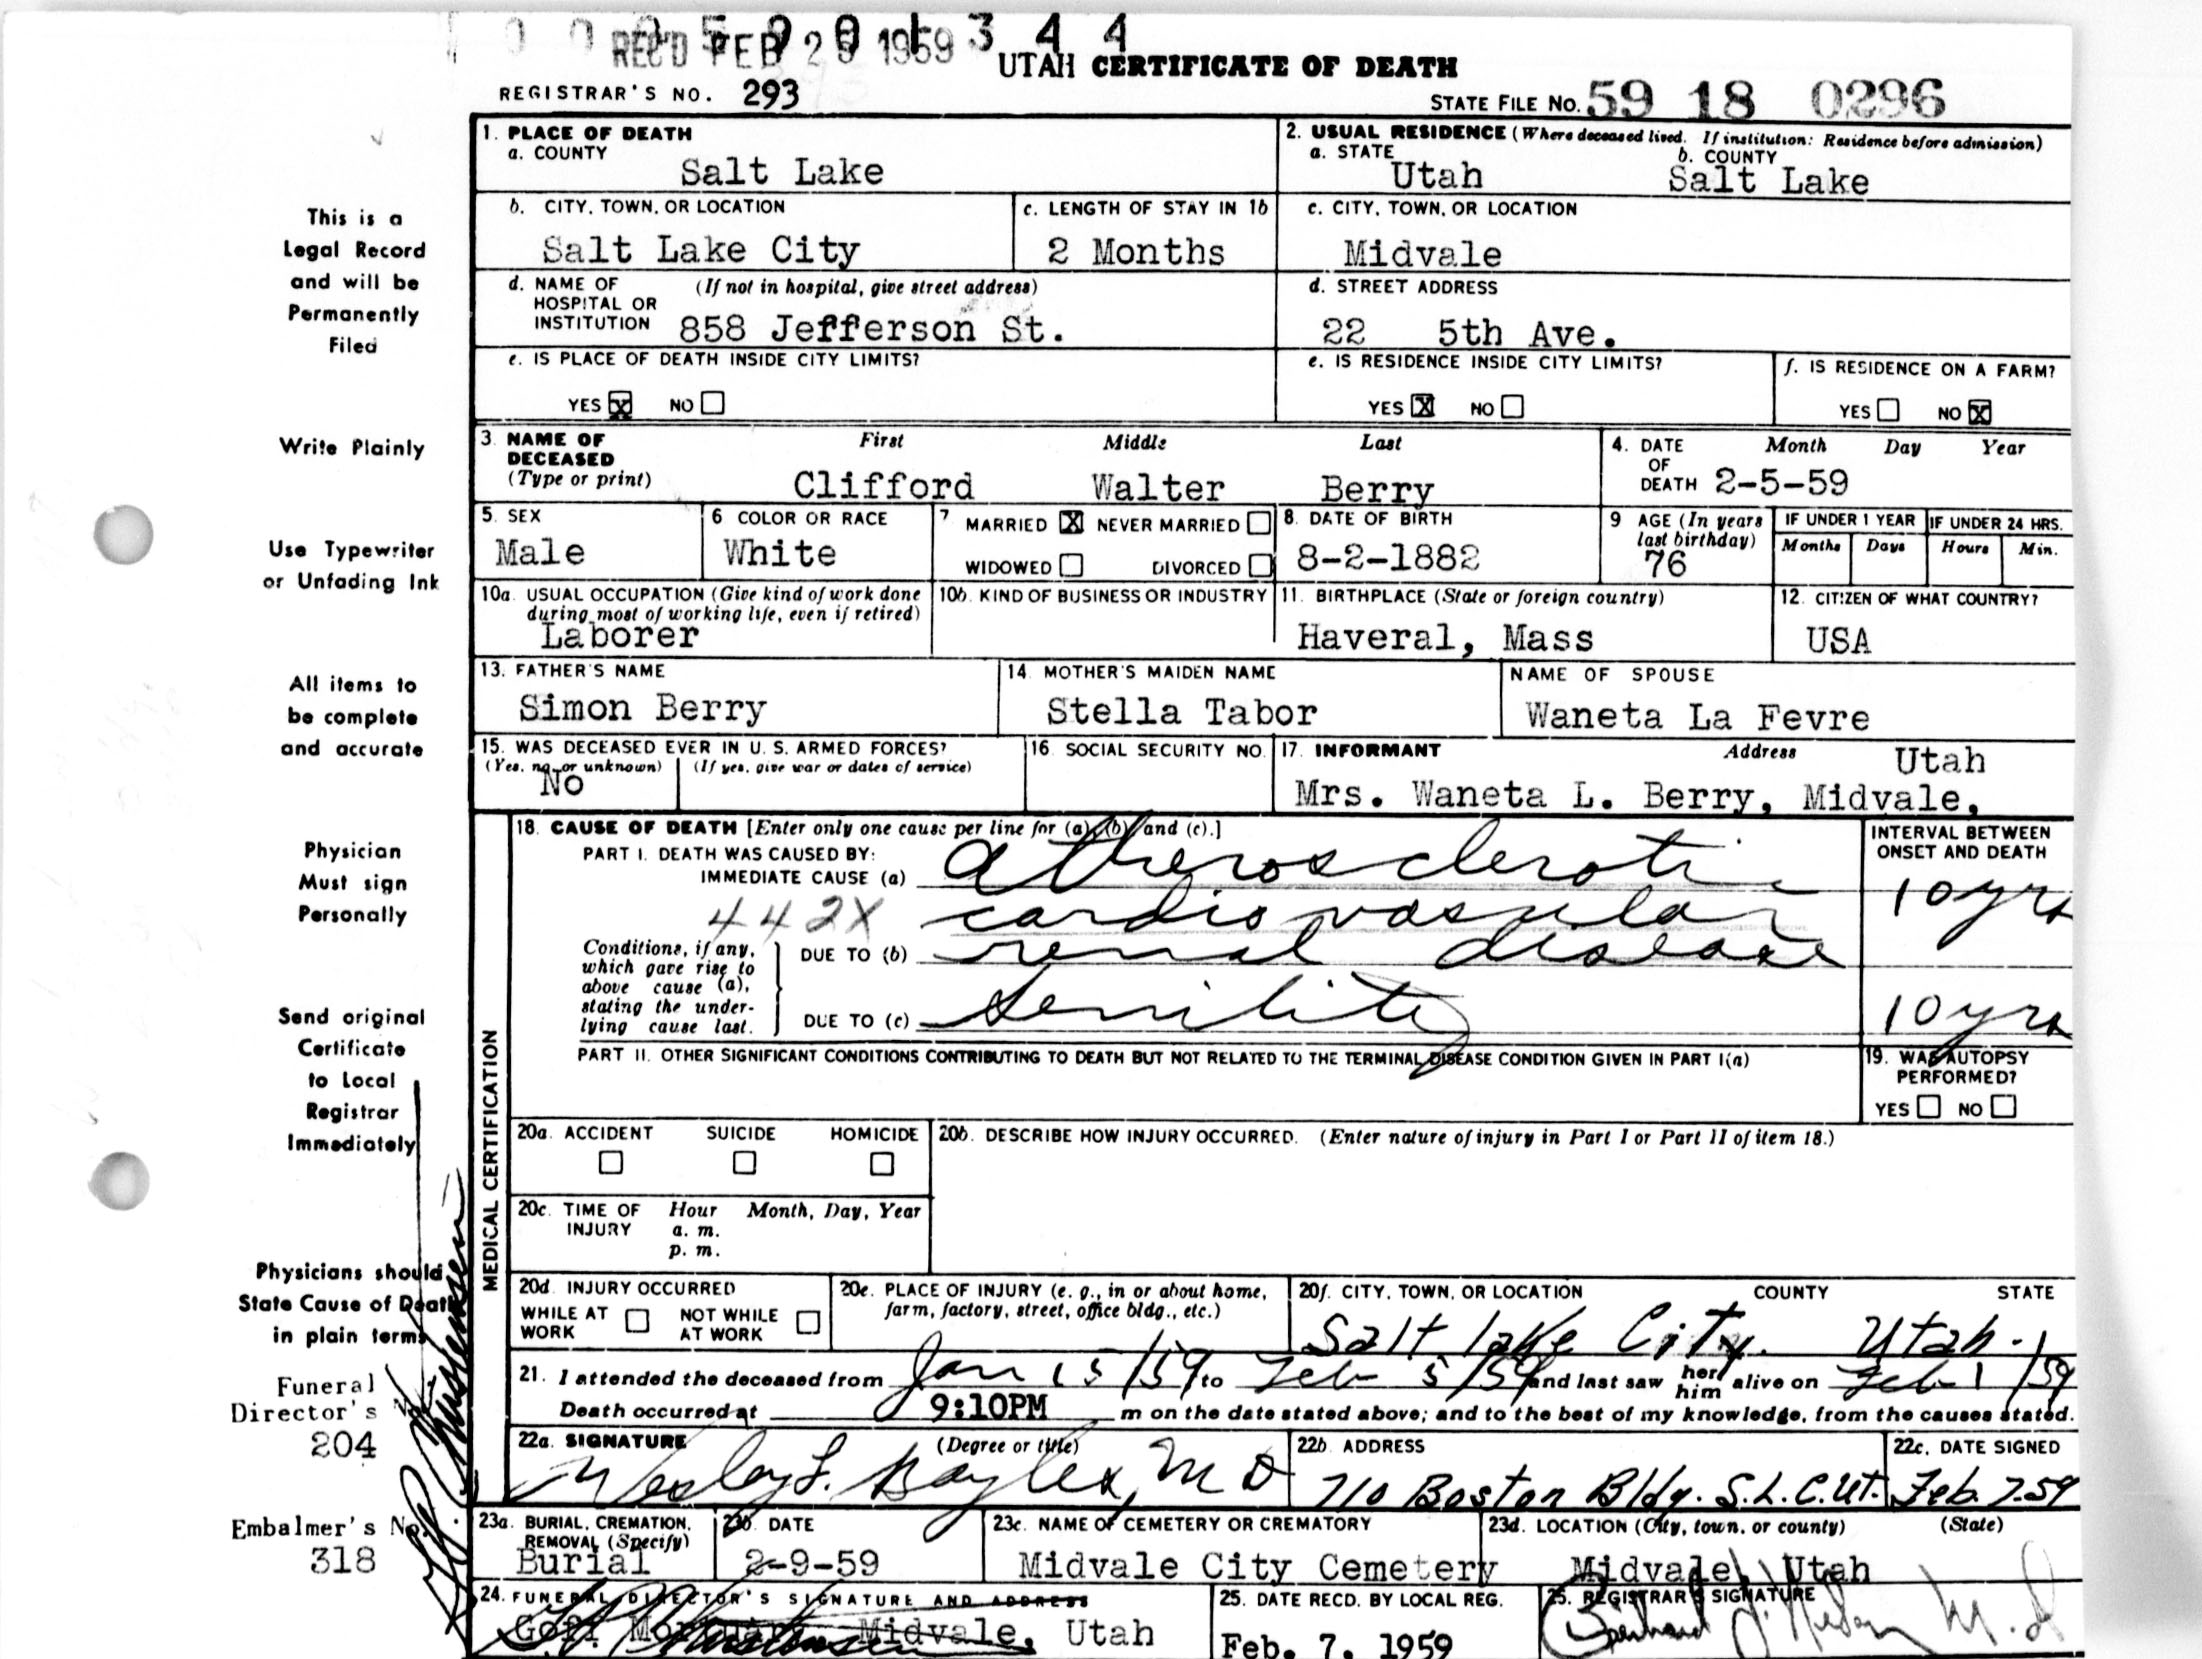 REC'D FEB 25 1959 344
UTAH CERTIFICATE OF DEATH
REGISTRAR'S NO. 293
STATE FILE No. 59 18 0296
This is a
Legal Record
and will be
Permanently
Filed
Write Plainly
Use Typewriter
or Unfading Ink
All items to
be complete
and accurate
Physician
Must sign
Personally
Send original
Certificate
to Local
Registrar
Immediately
Physicians should
State Cause of Death
in plain terms
Funeral
Director's No.
204
Embalmer's No.
318
1. PLACE OF DEATH
a. COUNTY
Salt Lake
2. USUAL RESIDENCE (Where deceased lived. If institution: Residence before admission)
a. STATE b. COUNTY
Utah Salt Lake
b. CITY, TOWN, OR LOCATION
Salt Lake City
c. LENGTH OF STAY IN 1b
2 Months
c. CITY, TOWN, OR LOCATION
Midvale
d. NAME OF (If not in hospital, give street address)
HOSPITAL OR
INSTITUTION 858 Jefferson St.
d. STREET ADDRESS
22 5th Ave.
e. IS PLACE OF DEATH INSIDE CITY LIMITS?
YES X NO
e. IS RESIDENCE INSIDE CITY LIMITS?
YES X NO
f. IS RESIDENCE ON A FARM?
YES NO X
3. NAME OF First Middle Last
DECEASED
(Type or print) Clifford Walter Berry
4. DATE Month Day Year
OF
DEATH 2-5-59
5. SEX
Male
6 COLOR OR RACE
White
7 MARRIED X NEVER MARRIED
WIDOWED DIVORCED
8. DATE OF BIRTH
8-2-1882
9 AGE (In years
last birthday)
76
IF UNDER 1 YEAR IF UNDER 24 HRS.
Months Days Hours Min.
10a. USUAL OCCUPATION (Give kind of work done
during most of working life, even if retired)
Laborer
10b. KIND OF BUSINESS OR INDUSTRY
11. BIRTHPLACE (State or foreign country)
Haveral, Mass
12. CITIZEN OF WHAT COUNTRY?
USA
13. FATHER'S NAME
Simon Berry
14. MOTHER'S MAIDEN NAME
Stella Tabor
NAME OF SPOUSE
Waneta La Fevre
15. WAS DECEASED EVER IN U. S. ARMED FORCES?
(Yes, no, or unknown) (If yes, give war or dates of service)
No
16. SOCIAL SECURITY NO.
17. INFORMANT Address Utah
Mrs. Waneta L. Berry, Midvale,
MEDICAL CERTIFICATION
18. CAUSE OF DEATH [Enter only one cause per line for (a), (b) and (c).]
PART I. DEATH WAS CAUSED BY:
IMMEDIATE CAUSE (a) atherosclerotic
442X cardiovascular
DUE TO (b) renal disease
Conditions, if any,
which gave rise to
above cause (a),
stating the under-
lying cause last.
DUE TO (c) Senility
INTERVAL BETWEEN
ONSET AND DEATH
10 yrs
10 yrs
PART II. OTHER SIGNIFICANT CONDITIONS CONTRIBUTING TO DEATH BUT NOT RELATED TO THE TERMINAL DISEASE CONDITION GIVEN IN PART I(a)
19. WAS AUTOPSY
PERFORMED?
YES NO
20a. ACCIDENT SUICIDE HOMICIDE
20b. DESCRIBE HOW INJURY OCCURRED. (Enter nature of injury in Part I or Part II of item 18.)
20c. TIME OF Hour Month, Day, Year
INJURY a. m.
p. m.
20d. INJURY OCCURRED
WHILE AT NOT WHILE
WORK AT WORK
20e. PLACE OF INJURY (e. g., in or about home,
farm, factory, street, office bldg., etc.)
20f. CITY, TOWN, OR LOCATION COUNTY STATE
Salt lake City. Utah.
21. I attended the deceased from Jan 15/59 to Feb 5/59 and last saw her/him alive on Feb 1/59
Death occurred at 9:10PM m on the date stated above; and to the best of my knowledge, from the causes stated.
22a. SIGNATURE (Degree or title)
Wesley L. Bayles, M D
22b. ADDRESS
710 Boston Bldg. S.L.C. Ut.
22c. DATE SIGNED
Feb. 7.59
23a. BURIAL, CREMATION,
REMOVAL (Specify)
Burial
23b. DATE
2-9-59
23c. NAME OF CEMETERY OR CREMATORY
Midvale City Cemetery
23d. LOCATION (City, town, or county) (State)
Midvale, Utah
24. FUNERAL DIRECTOR'S SIGNATURE AND ADDRESS
Goff Mortuary Midvale, Utah
25. DATE RECD. BY LOCAL REG.
Feb. 7, 1959
25. REGISTRAR'S SIGNATURE